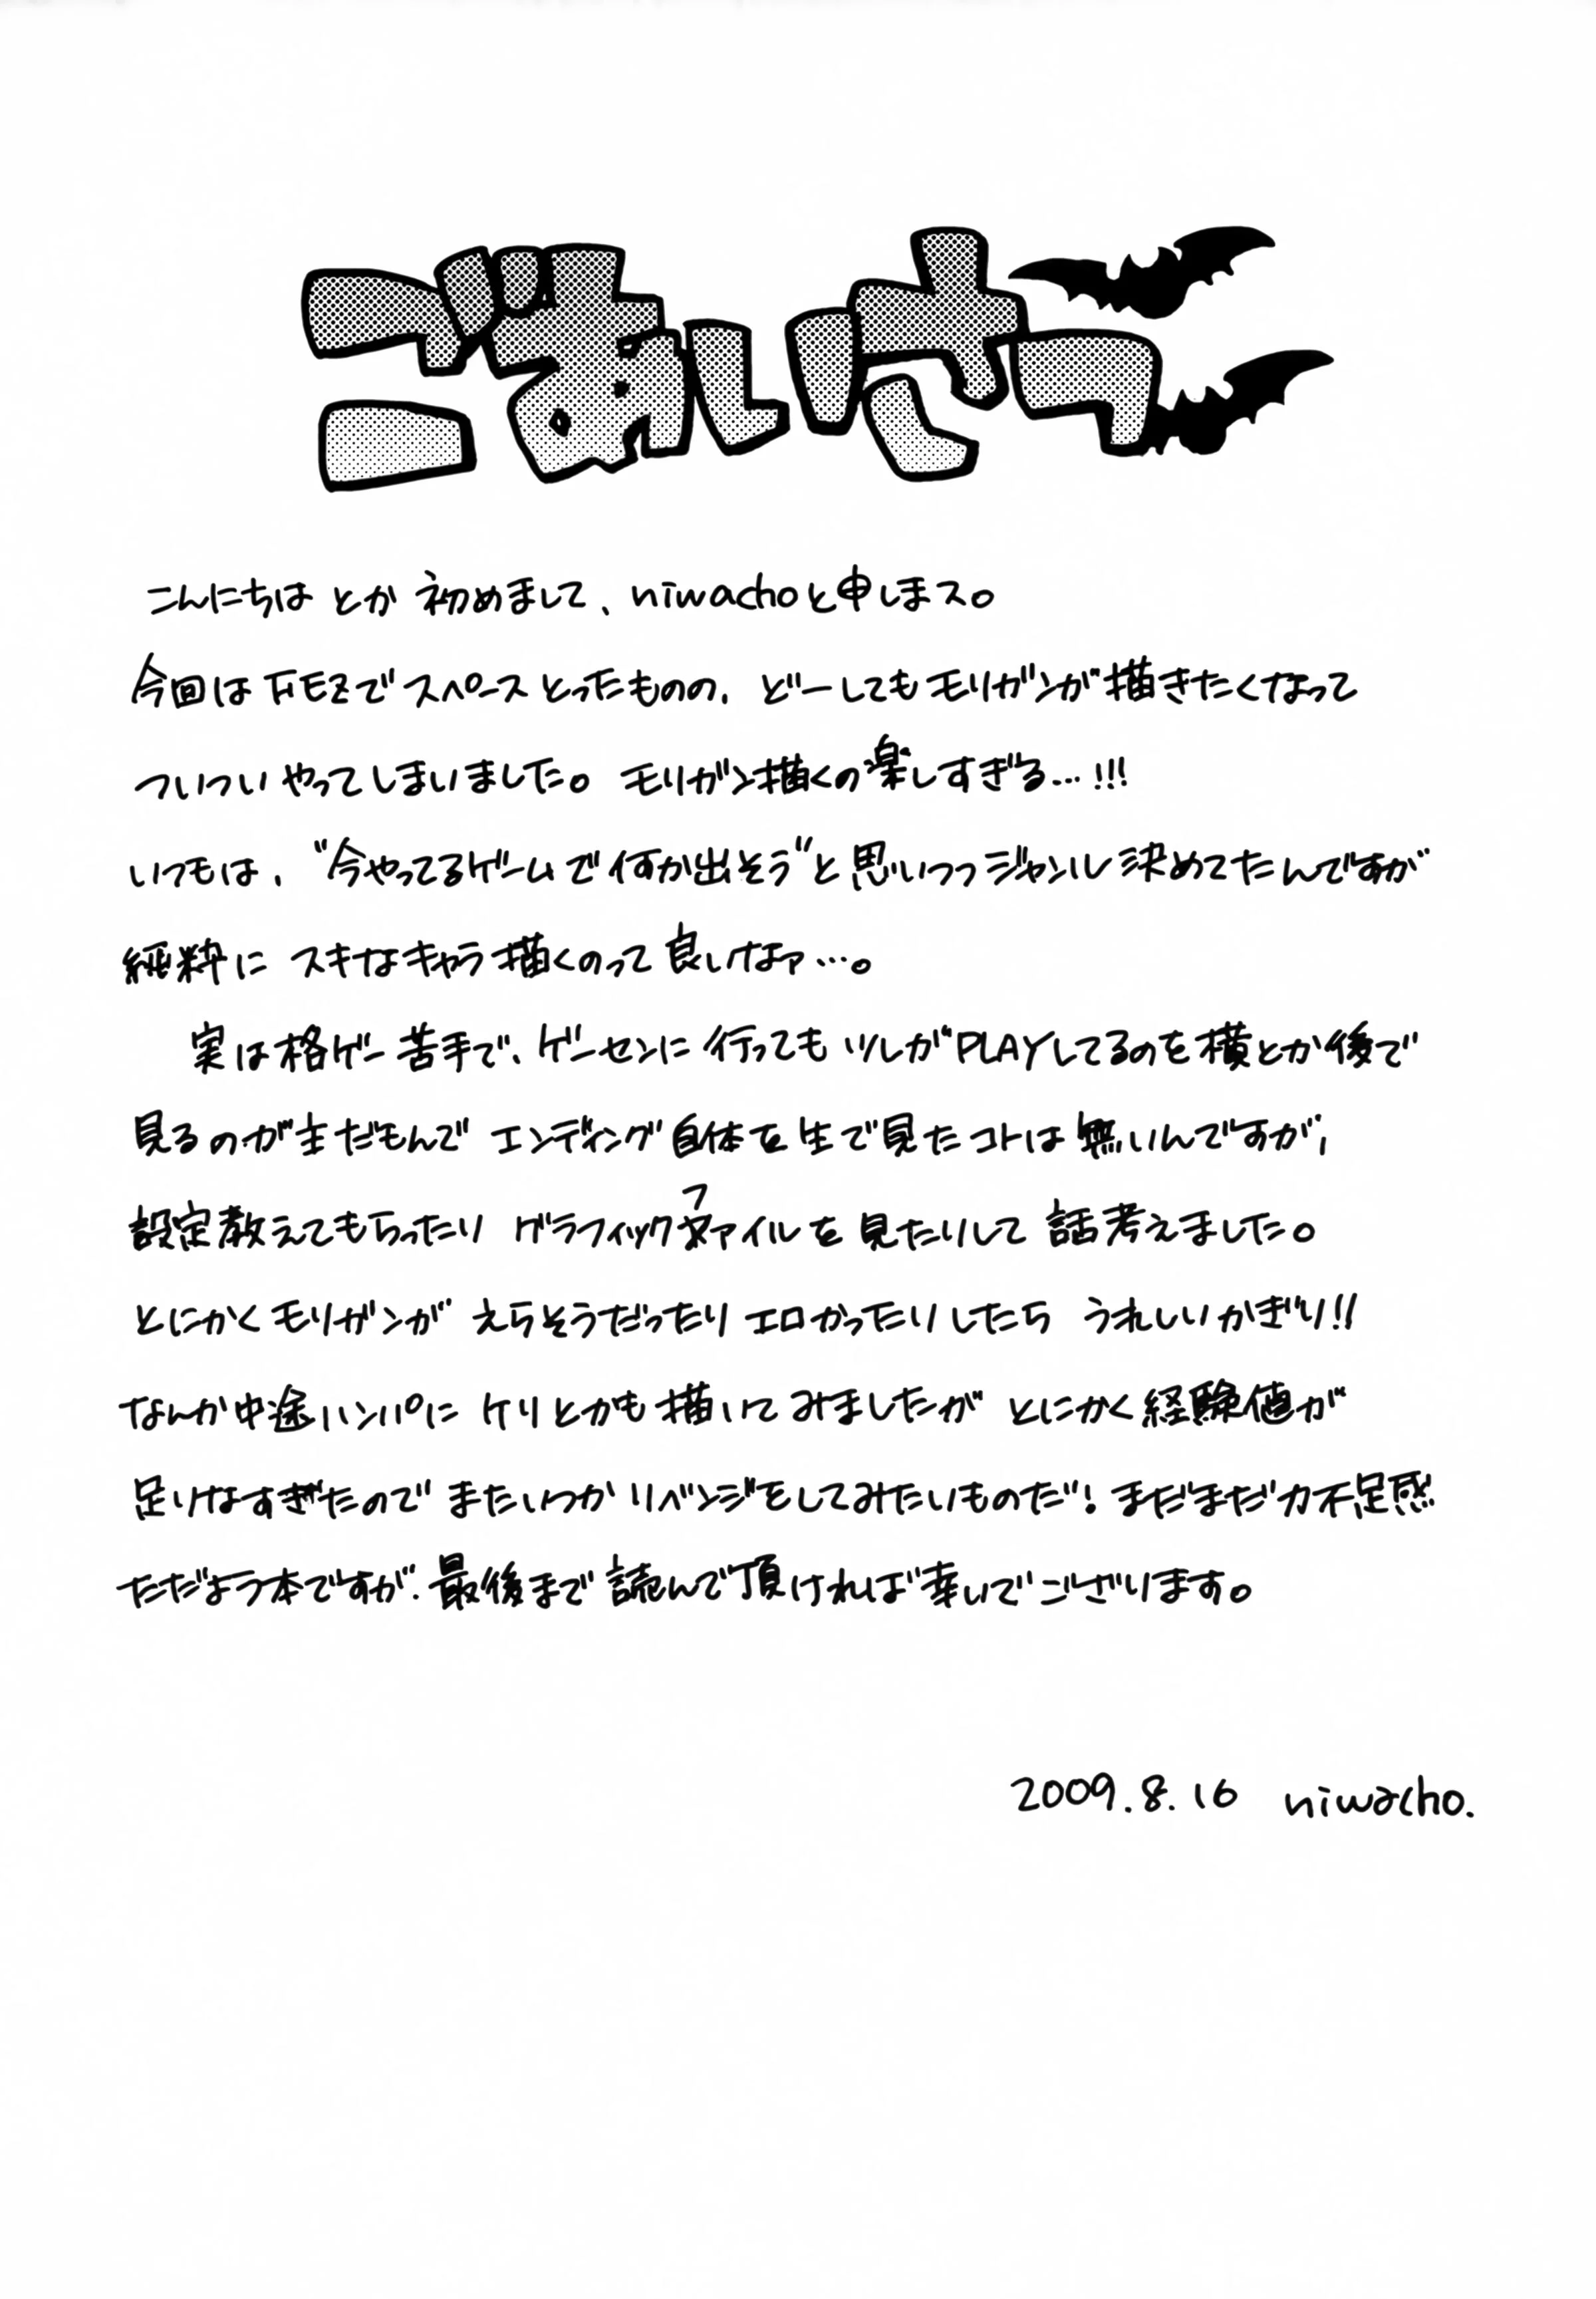 ごあいさつ
こんにちは とか 初めまして、niwachoと申しまス。
今回は FEZで スペース とったものの、どーしても モリガンが 描きたくなって
ついつい やって しまいました。 モリガン描くの楽しすぎる…!!!
いつもは、“今やってるゲームで何か出そう”と思いつつ ジャンル 決めてたんですが
純粋に スキなキャラ 描くのって 良いなァ…。
実は格ゲー苦手で、ゲーセンに 行っても ツレが PLAYしてるのを 横とか後で
見るのが主だもんで エンディング 自体を 生で見た コトは 無いんですが、
設定教えてもらったり グラフィックファイルを 見たりして 話考えました。
とにかく モリガンが えらそうだったり エロかったり したら うれしいかぎり!!
なんか中途ハンパに ケリとかも 描いて みましたが とにかく 経験値が
足りなすぎたので またいつか リベンジをしてみたいものだ! まだまだ力不足感
ただよう本ですが、最後まで 読んで頂ければ幸いでございます。
2009.8.16 niwacho.